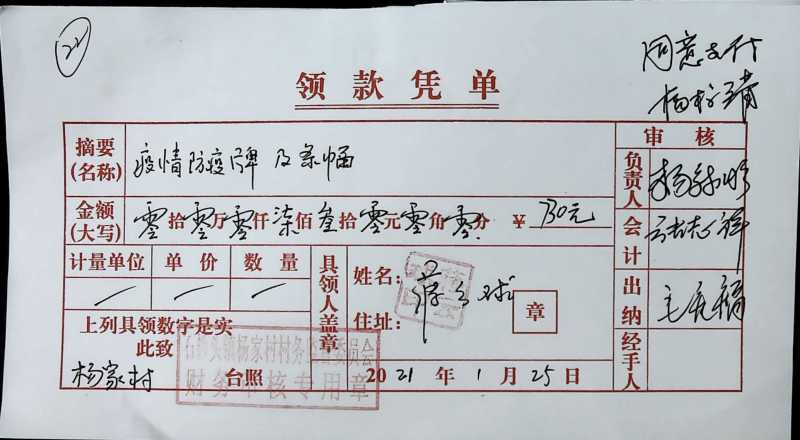 22
同意支付
领款凭单
摘要(名称) 疫情防疫牌及条幅
审核
金额(大写) 零拾零万零仟柒佰叁拾零元零角零分 ¥ 730元
负责人
会计
计量单位 单价 数量
具领人盖章
姓名:
住址: 章
出纳
上列具领数字是实
此致
杨家村 台照
杨家村村务监督委员会
财务审核专用章
2021年1月25日
经手人